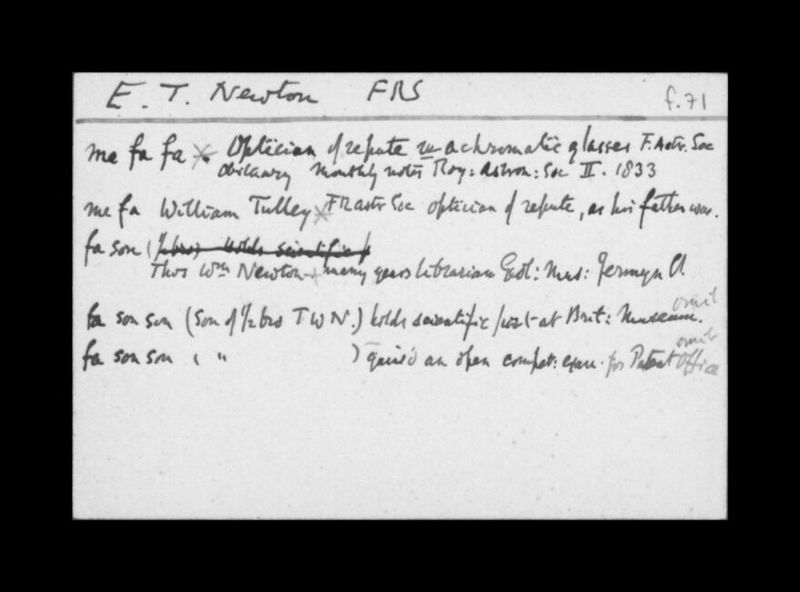 E. T. Newton FRS f.71
me fa fa Optician of repute re achromatic glasses F. Astr. Soc
obituary Monthly notes Roy: Astron: Soc II. 1833
me fa William Tulley FR Astr Soc optician of repute, as his father was.
fa son (½ bro) holds scientific p
Thos Wm Newton many years librarian Geol: Mus: Jermyn St
omit
fa son son (Son of ½ bro T W N.) holds scientific post at Brit: Museum.
omit
fa son son ( " ) gained an open compet: exam. for Patent Office